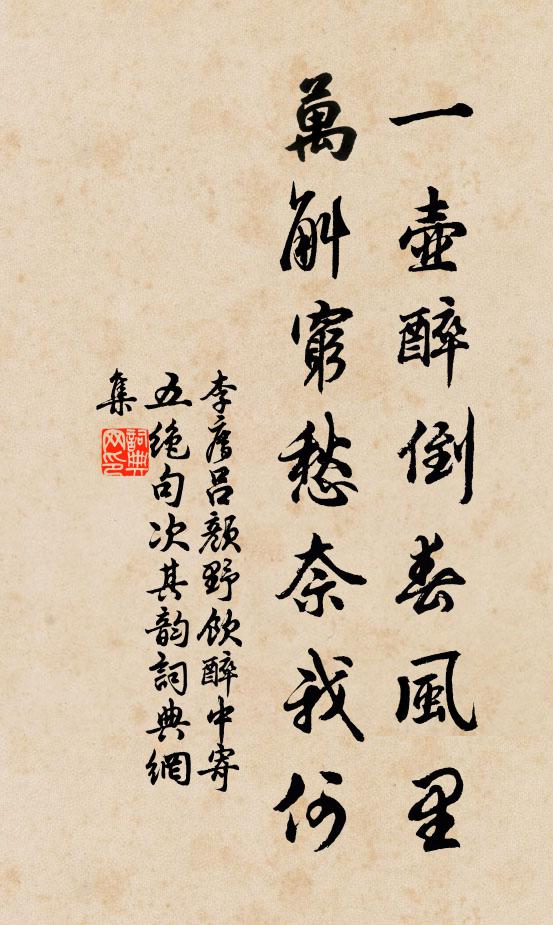 一壺醉倒春風里
萬斛窮愁奈我何
李呂顏野飲醉中寄
五絕句次其韵詞典網
集
詞典網印